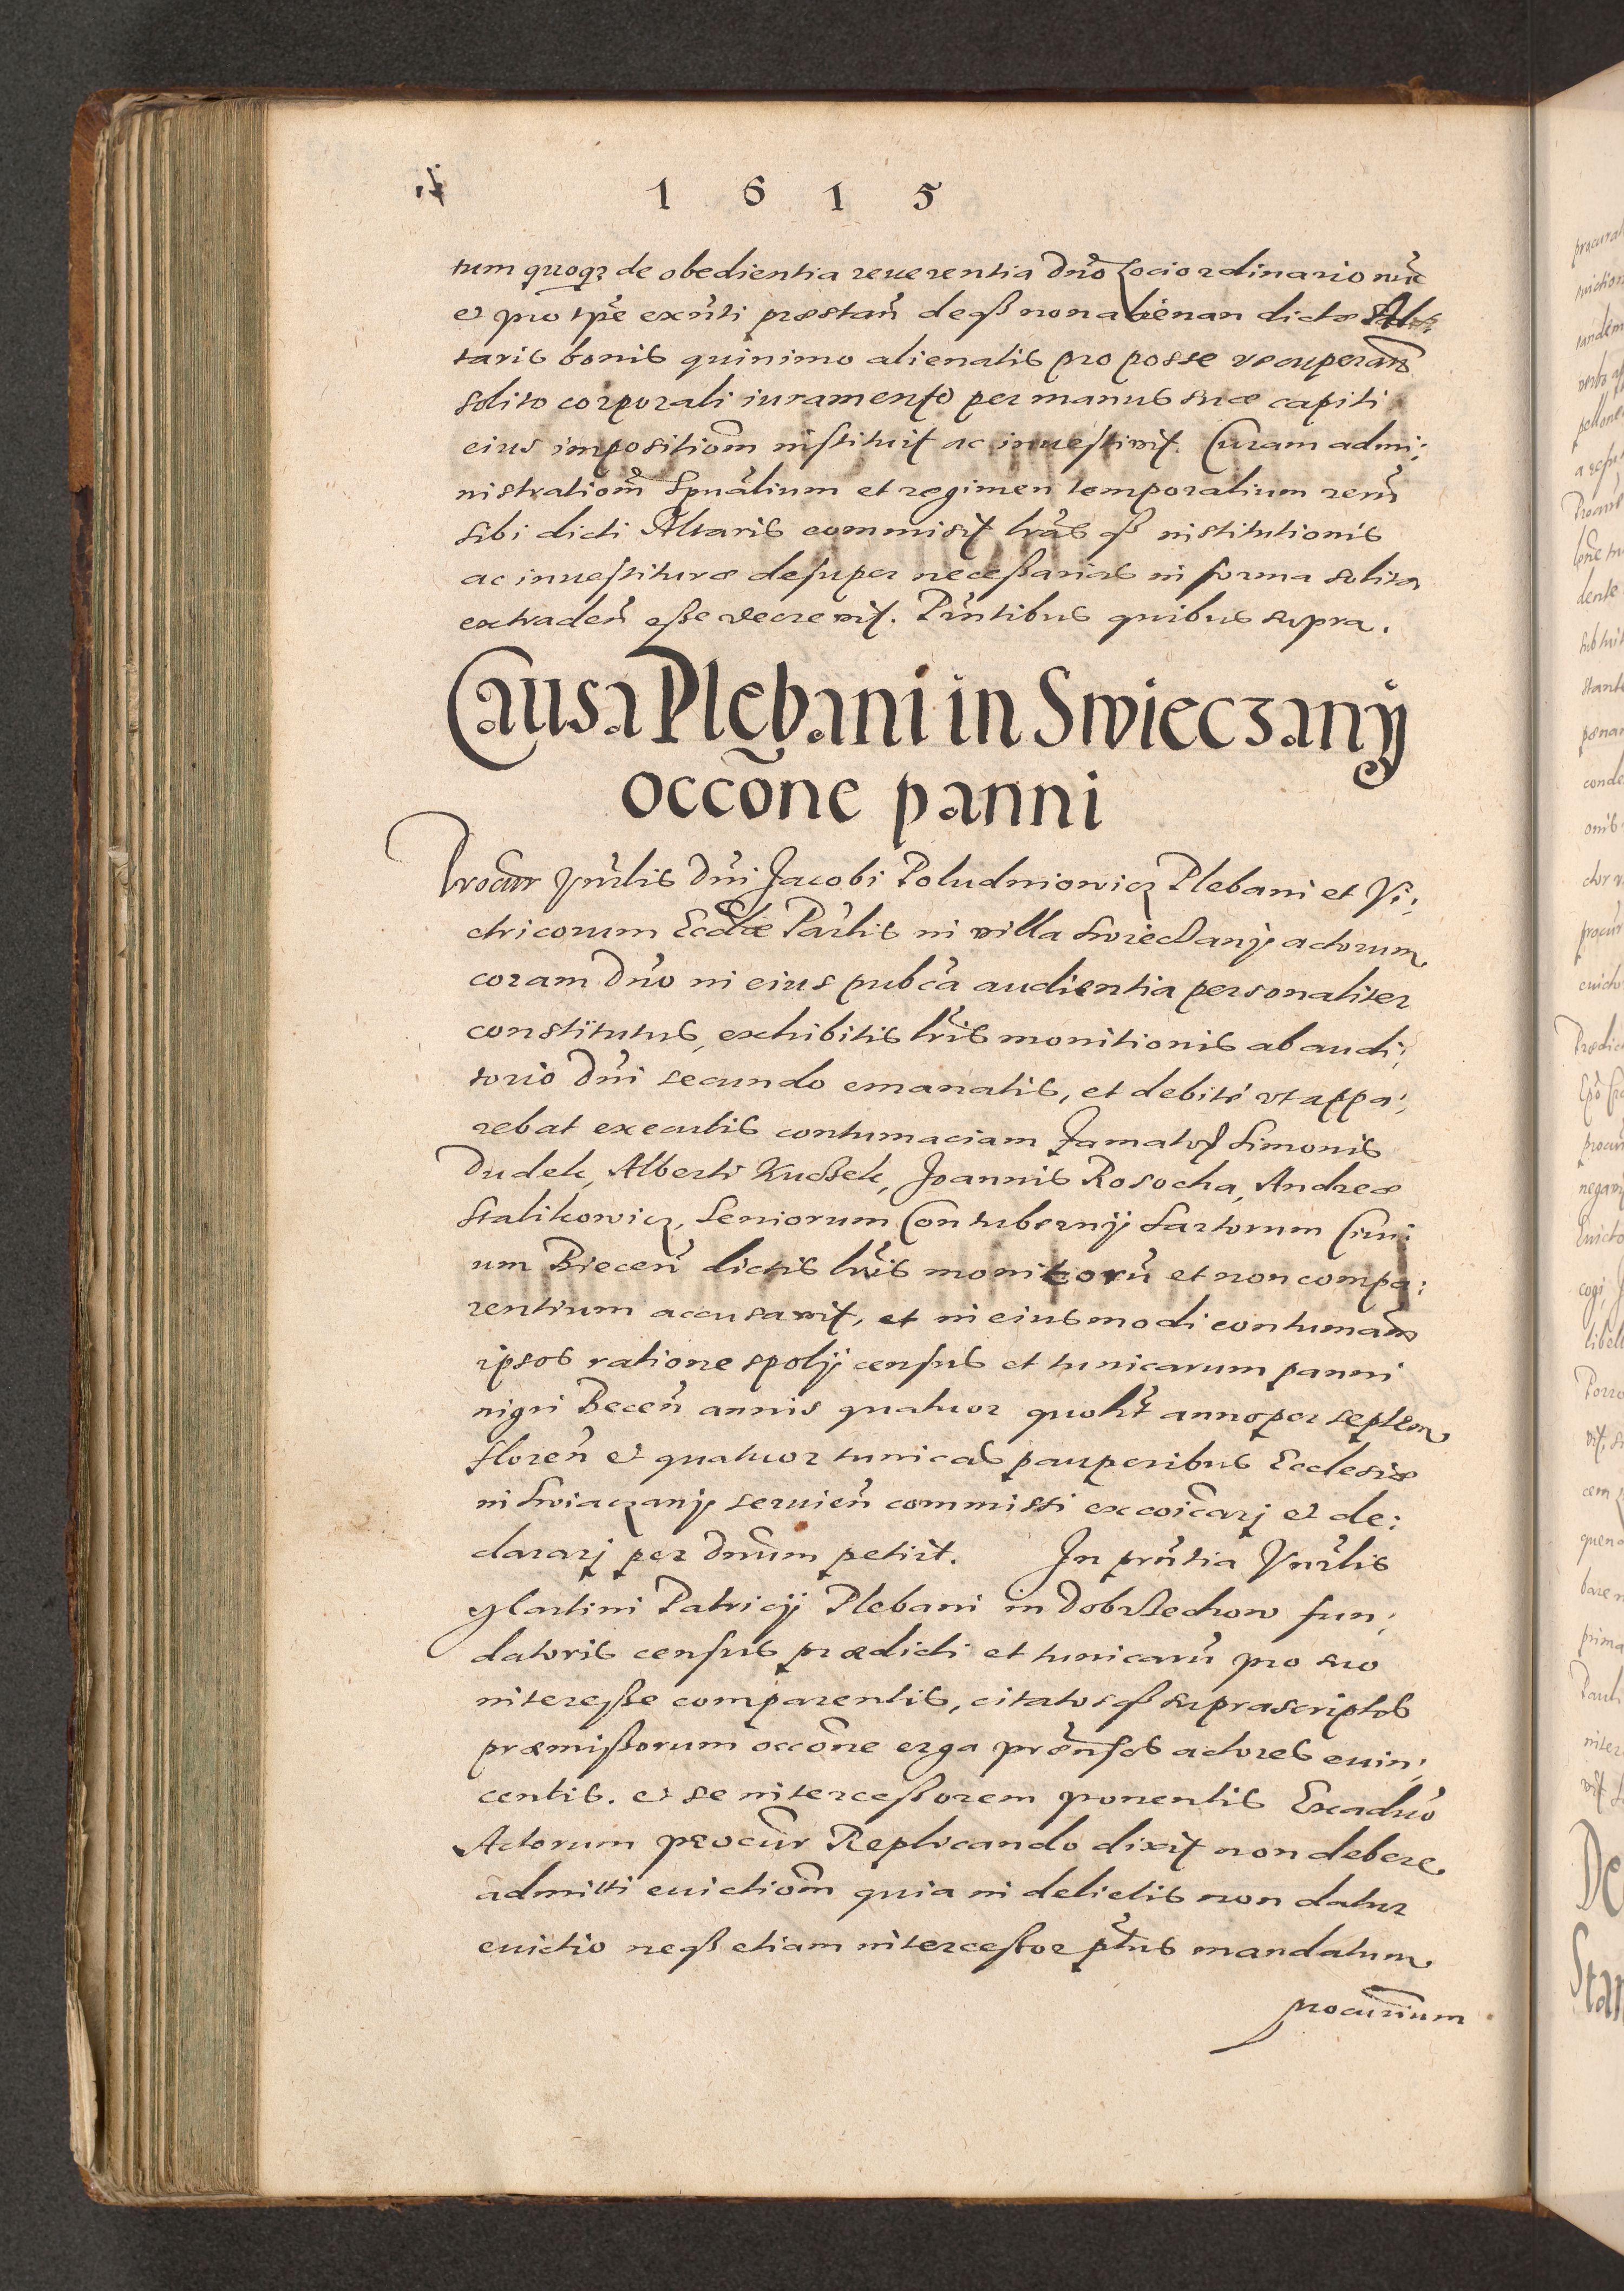 1 6 1 5
tum quoqꝫ de obedientia reuerentia Dnõ Loci ordinario nũc
et pro tp̃e exñti præstañ deqß non alienan dictæ Al
taris bonis quinimo alienatis pro posse recuperañ
solito corporali iuramento per manus suæ capiti
eius impositiom̃ instituit ac inuestiuit. Curam admi:
nistratiom̃ Spũalium et regimen temporalium rerũ
sibi dicti Altaris commisit lr̃as qß institutionis
ac inuestituræ desuper necessarias in forma solita
extradeñ esse decreuit. Pñtibus quibus supra.
Causa Plebani in Swieczany
occõne panni
Procur̃ Vñrlis Dñi Jacobi Poludniowicz Plebani et Vi:
ctricorum Eccl̃æ Par̃lis in villa Swieczany actorum
coram Dñio in eius pub̃ca audientia personaliter
constitutus, exhibitis lr̃is monitionis ab audi:
torio Dñi secundo emanatis, et debitè vt appa:
rebat executis contumaciam Famatoꝝ Simonis
Dudek, Alberti Kußek, Joannis Rosocha, Andreæ
Stalikowicz, Seniorum Contubernij Sartorum Ciui:
um Bieceñ dictis lr̃is monitorũ et non compa:
rentium accusauit, et in eiusmodi contumam̃
ipsos ratione spolij census et tunicarum panni
nigri Beceñ annis quatuor quolt̃ anno per septem
floreñ et quatuor tunicas pauperibus Ecclesiæ
in Swiaczany seruieñ commissi excoic̃arj et de:
clararj per Dnũm petijt. In prñtia Vñrlis
Martini Patricij Plebani in Dobrßechow fun:
datoris census prædicti et tunicarũ pro suo
interesse comparentis, citatos qß suprascriptos
præmissorum occõne erga prõensos actores euin:
centis. et se intercessorem ponentis Exaduõ
Actorum procur̃ Replicando dixit non debere
admitti euictiom̃ quia in delictis non datur
euictio neqß etiam intercessor pt̃us mandatum
procur̃ium